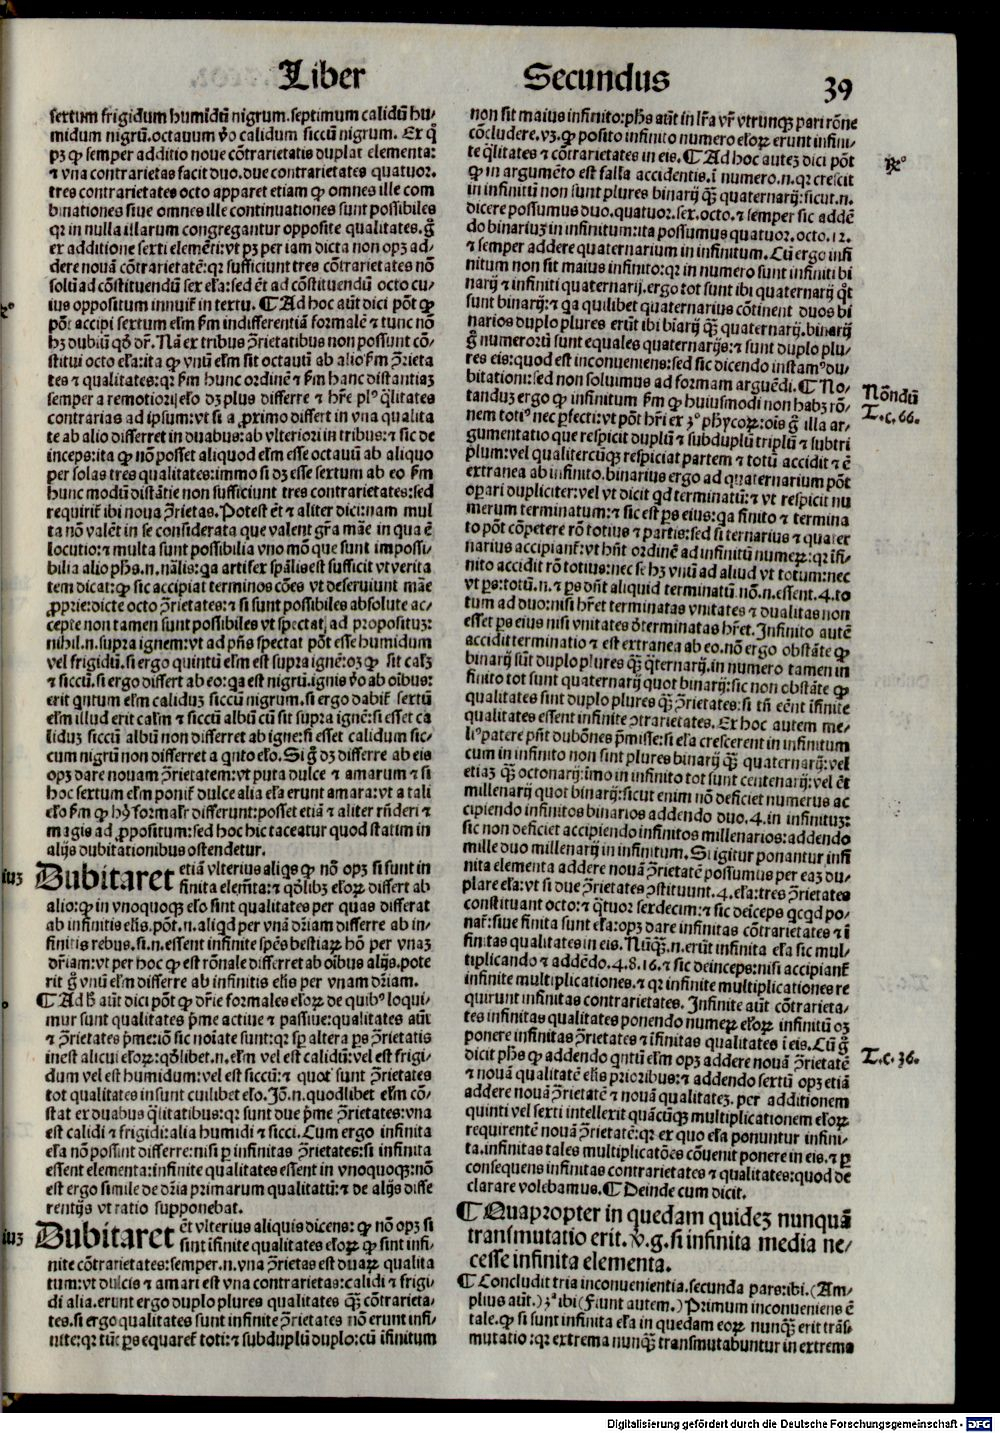 Liber Secundus 39
sextum frigidum humidū nigrum. septimum calidū hu⸗
midum nigrū. octauum ꝟo calidum siccū nigrum. Ex ꝗ̊
pꝫ ꝙ semper additio noue cōtrarietatis duplat elementa:
⁊ vna contrarietas facit duo. due contrarietates quatuor.
tres contrarietates octo apparet etiam ꝙ omnes ille com
binationes siue omnes ille continuationes sunt possibiles
qꝛ in nulla illarum congregantur opposite qualitates. g̊
ex additione sexti elemēti: vt pꝫ per iam dicta non opꝫ ad⸗
dere nouā cōtrarietatē: qꝛ sufficiunt tres cōtrarietates nō
solū ad cōstituendū sex ela: sed ēt ad cōstituendū octo cu⸗
ius oppositum innuit̄ in textu. ¶ Ad hoc aūt dici pōt ꝙ
pōt accipi sextum elm̄ ẜm indifferentiā formalē ⁊ tunc nō
hꝫ dubiū qd̄ dr̄. Nā ex tribus ꝯ̄rietatibus non possunt cō⸗
stitui octo ela: ita ꝙ vnū elm̄ sit octauū ab alio ẜm ꝯ̄rieta
tes ⁊ qualitates: qꝛ ẜm hunc ordinē ⁊ ẜm hanc distantiaꝫ
semper a remotiori elo dꝫ plus differre ⁊ hr̄e plꝰ q̄litates
contrarias ad ipsum: vt si a ꝓximo differt in vna qualita
te ab alio differret in duabus: ab vlteriori in tribus: ⁊ sic de
inceps: ita ꝙ nō posset aliquod elm̄ esse octauū ab aliquo
per solas tres qualitates: immo si dꝫ esse sextum ab eo ẜm
hunc modū distātie non sufficiunt tres contrarietates: sed
requirit̄ ibi noua ꝯ̄rietas. Potest ēt ⁊ aliter dici: nam mul
ta nō valēt in se considerata que valent gr̄a māe in qua ē
locutio: ⁊ multa sunt possibilia vno mō que sunt impossi⸗
bilia alio phs̄. n. nālis: qa artifex spālis est sufficit vt verita
tem dicat: ꝙ sic accipiat terminos cōes vt deseruiunt māe
ꝓprie: dicte octo ꝯ̄rietates: ⁊ si sunt possibiles absolute ac⸗
cepte non tamen sunt possibiles vt spectat ad propositꝫ:
nihil. n. supra ignem: vt ad pn̄s spectat pōt esse humidum
vel frigidū. si ergo quintū elm̄ est supra ignē: oꝫ ꝙ sit calꝫ
⁊ siccū. si ergo differt ab eo: qa est nigrū. ignis ꝟo ab oībus:
erit qntum elm̄ calidus siccū nigrum. si ergo dabit̄ sextū
elm̄ illud erit calm̄ ⁊ siccū albū cū sit supra ignē: si esset ca
lidus siccū albū non differret ab igne: si esset calidum sic⸗
cum nigrū non differret a qnto elo. Si g̊ dꝫ differre ab eis
opꝫ dare nouam ꝯ̄rietatem: vt puta dulce ⁊ amarum ⁊ si
hoc sextum elm̄ ponit̄ dulce alia ela erunt amara: vt a tali
elo ẜm ꝙ hꝰ formalr̄ differunt: posset etiā ⁊ aliter rn̄deri ⁊
magis ad ꝓpositum: sed hoc hic taceatur quod statim in
alijs dubitationibus ostendetur.
iuꝫ
Dubitaret etiā vlterius aliqs ꝙ nō opꝫ si sunt in
finita elem̄ta: ⁊ qd̄libꝫ eloꝝ differt ab
alio: ꝙ in vnoquoqꝫ elo sint qualitates per quas differat
ab infinitis elis. pōt. n. aliqd per vnā dr̄iam differre ab in⸗
finitis rebus. si. n. essent infinite spēs bestiaꝝ hō per vnaꝫ
dr̄iam: vt per hoc ꝙ est rōnale differret ab oībus alijs. pote
rit g̊ vnū elm̄ differre ab infinitis elis per vnam dr̄iam.
¶ Ad ħ aūt dici pōt ꝙ dr̄ie formales eloꝝ de quibꝰ loqui⸗
mur sunt qualitates p̄me actiue ⁊ passiue: qualitates aūt
⁊ ꝯ̄rietates p̄me: iō sic noiate sunt: qꝛ sp̄ altera ps̄ ꝯ̄rietatis
inest alicui eloꝝ: qd̄libet. n. elm̄ vel est calidū: vel est frigi⸗
dum vel est humidum: vel est siccū: ⁊ quot sunt ꝯ̄rietates
tot qualitates insunt cuilibet elo. Iō. n. quodlibet elm̄ cō⸗
stat ex duabus q̄litatibus: qꝛ sunt due p̄me ꝯ̄rietates: vna
est calidi ⁊ frigidi: alia humidi ⁊ sicci. Cum ergo infinita
ela nō possint differre: nisi ꝑ infinitas ꝯ̄rietates: si infinita
essent elementa: infinite qualitates essent in vnoquoqꝫ: nō
est ergo simile de dr̄ia primarum qualitatū: ⁊ de alijs diffe
rentijs vt ratio supponebat.
iuꝫ
Dubitaret ēt vlterius aliquis dicens: ꝙ nō opꝫ si
sunt īfinite qualitates eloꝝ ꝙ sint infi⸗
nite cōtrarietates: semper. n. vna ꝯ̄rietas est duaꝝ qualita
tum: vt dulcis ⁊ amari est vna contrarietas: calidi ⁊ frigi⸗
di alia. erunt ergo duplo plures qualitates qꝫ̄ cōtrarieta⸗
tes. si ergo qualitates sunt infinite ꝯ̄rietates nō erunt infi⸗
nite: qꝛ tūc ps̄ equaret̄ toti: ⁊ subduplū duplo: cū īfinitum
non sit maius infinito: phs̄ aūt in lr̄a vr̄ vtrunqꝫ pari rōne
cōcludere. vꝫ. ꝙ posito infinito numero eloꝝ erunt infini⸗
te q̄litates ⁊ cōtrarietates in eis. ¶ Ad hoc auteꝫ dici pōt
ꝙ in argumēto est falla accidentis. ī numero. n. qꝛ crescit
in infinitū non sunt plures binarij qꝫ̄ quaternarij: sicut. n.
dicere possumus duo. quatuor. sex. octo. ⁊ semper sic addē
do binariuꝫ in infinitum: ita possumus quatuor. octo. 12.
⁊ semper addere quaternarium in infinitum. Cū ergo infi
nitum non sit maius infinito: qꝛ in numero sunt infiniti bi
narij ⁊ infiniti quaternarij. ergo tot sunt ibi quaternarij q̊t
sunt binarij: ⁊ qa quilibet quaternarius cōtinent duos bi
narios duplo plures erūt ibi bīarij qꝫ̄ quaternarij. binarij
g̊ numero: tū sunt equales quaternarijs: ⁊ sunt duplo plu⸗
res eis: quod est inconueniens: sed sic dicendo instamꝰ du⸗
bitationi: sed non soluimus ad formam arguēdi. ¶ No⸗
Nōndū
tanduꝫ ergo ꝙ infinitum ẜm ꝙ huiusmodi non habꝫ rō⸗
T. c. 66.
nem totiꝰ nec ꝑfecti: vt pōt hr̄i ex 3º phycoꝝ: ois g̊ illa ar⸗
gumentatio que respicit duplū ⁊ subduplū triplū ⁊ subtri
plum: vel qualitercūqꝫ respiciat partem ⁊ totū accidit ⁊ ē
extranea ab infinito. binarius ergo ad quaternarium pōt
oꝑari dupliciter: vel vt dicit qd terminatū: ⁊ vt respicit nu
merum terminatum: ⁊ sic est ps eius: qa finito ⁊ termina
to pōt cōpetere rō totius ⁊ partis: sed si ternarius ⁊ quater
narius accipiant̄: vt hn̄t ordinē ad infinitū numeꝝ: qꝛ īfi⸗
nito accidit rō totius: nec se hꝫ vnū ad aliud vt totum: nec
vt ps: totū. n. ⁊ ps dn̄t aliquid terminatū. nō. n. essent. 4. to
tum ad duo: nisi hr̄et terminatas vnitates ⁊ dualitas non
esset ps eius nisi vnitates d̄terminatas hr̄et. Infinito autē
accidit terminatio ⁊ est extranea ab eo. nō ergo obstāte ꝙ
binarij sūt duplo plures qꝫ̄ q̄ternarij. in numero tamen in
finito tot sunt quaternarij quot binarij: sic non obstāte ꝙ
qualitates sint duplo plures qꝫ̄ ꝯ̄rietates: si tn̄ eēnt īfinite
qualitates essent infinite ꝯtrarietates. Ex hoc autem me⸗
liꝰ patere pn̄t dubōnes p̄misse: si ela crescerent in infinitum
cum in infinito non sint plures binarij qꝫ̄ quaternarij: vel
etiaꝫ qꝫ̄ octonarij: imo in infinito tot sunt centenarij: vel ēt
millenarij quot binarij: sicut enim nō deficiet numerus ac
cipiendo infinitos binarios addendo duo. 4. in infinituꝫ:
sic non deficiet accipiendo infinitos millenarios: addendo
mille duo millenarij in infinitum. Si igitur ponantur infi
nita elementa addere nouā ꝯ̄rietatē possumus per eaꝫ du⸗
plare ela: vt si due ꝯ̄rietates ꝯstituunt. 4. ela: tres ꝯ̄rietates
constituant octo: ⁊ q̄tuor sexdecim: ⁊ sic deīceps qcqd po⸗
nat̄: siue finita sunt ela: opꝫ dare infinitas cōtrarietates ⁊ ī
finitas qualitates in eis. Nūqꝫ̄. n. erūt infinita ela sic mul⸗
tiplicando ⁊ addēdo. 4. 8. 16. ⁊ sic deinceps: nisi accipiant̄
infinite multiplicationes. ⁊ qꝛ infinite multiplicationes re
quirunt infinitas contrarietates. Infinite aūt cōtrarieta⸗
tes infinitas qualitates ponendo numeꝝ eloꝝ infinitū oꝫ
ponere infinitas ꝯ̄rietates ⁊ īfinitas qualitates ī eis. Cū g̊
T. c. 36.
dicit phs̄ ꝙ addendo qntū elm̄ opꝫ addere nouā ꝯ̄rietatē
⁊ nouā qualitatē elis prioribus: ⁊ addendo sextū opꝫ etiā
addere nouā ꝯ̄rietatē ⁊ nouā qualitateꝫ. per additionem
quinti vel sexti intellexit quācūqꝫ multiplicationem eloꝝ
requirentē nouā ꝯ̄rietatē: qꝛ ex quo ela ponuntur infini⸗
ta. infinitas tales multiplicatōes cōuenit ponere in eis. ⁊ ꝑ
consequens infinitas contrarietates ⁊ qualitates: quod de
clarare volebamus. ¶ Deinde cum dicit.
¶ Quapropter in quedam quideꝫ nunquā
transmutatio erit. v. g. si infinita media ne⸗
cesse infinita elementa.
¶ Concludit tria inconuenientia. secunda pars: ibi. (Am⸗
plius aūt.) 3ª ibi (Fiunt autem.) Primum inconueniens ē
tale. ꝙ si sunt infinita ela in quedam eoꝝ nunqꝫ̄ erit trāſ⸗
mutatio: qꝛ extrema nunqꝫ̄ transmutabuntur in extrema
Digitalisierung gefördert durch die Deutsche Forschungsgemeinschaft - DFG